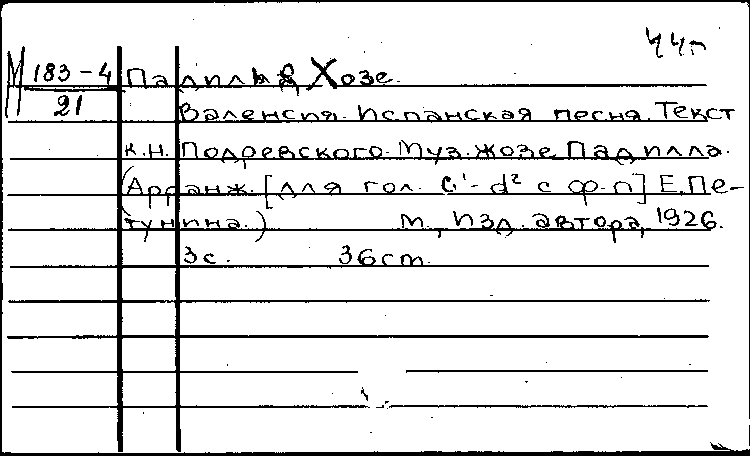 44п
М 183-4
21
Падилья Хозе.
Валенсия. Испанская песня. Текст
К.Н. Подревского. Муз. Жозе Падилла.
(Арранж. [для гол. c¹-d² с ф-п] Е. Пе-
тунина.) М., Изд. автора, 1926.
3с. 36cm.